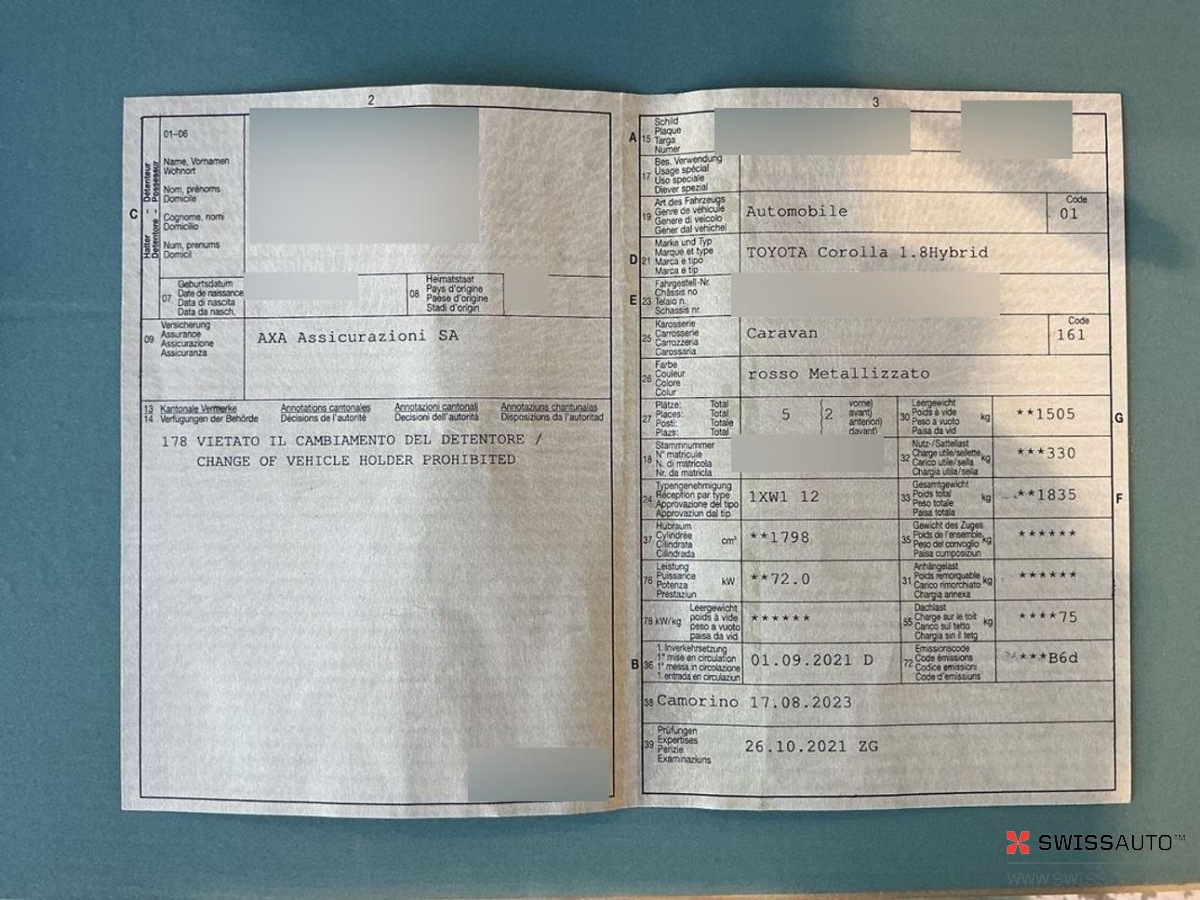 2
01-06
Halter Détenteur
Detentore - Possessur
C
Name, Vornamen
Wohnort
Nom, prénoms
Domicile
Cognome, nomi
Domicilio
Num, prenums
Domicil
07
Geburtsdatum
Date de naissance
Data di nascita
Data da nasch.
08
Heimatstaat
Pays d'origine
Paese d'origine
Stadi d'origin
09
Versicherung
Assurance
Assicurazione
Assicuranza
AXA Assicurazioni SA
13 Kantonale Vermerke Annotations cantonales Annotazioni cantonali Annotaziuns chantunalas
14 Verfügungen der Behörde Décisions de l'autorité Decisioni dell'autorità Disposiziuns da l'autoritad
178 VIETATO IL CAMBIAMENTO DEL DETENTORE /
CHANGE OF VEHICLE HOLDER PROHIBITED
3
A 15
Schild
Plaque
Targa
Numer
17
Bes. Verwendung
Usage spécial
Uso speciale
Diever spezial
19
Art des Fahrzeugs
Genre de véhicule
Genere di veicolo
Gener dal vehichel
Automobile
Code
01
D 21
Marke und Typ
Marque et type
Marca e tipo
Marca e tip
TOYOTA Corolla 1.8Hybrid
E 23
Fahrgestell-Nr.
Châssis no
Telaio n.
Schassis nr.
25
Karosserie
Carrosserie
Carrozzeria
Carossaria
Caravan
Code
161
26
Farbe
Couleur
Colore
Colur
rosso Metallizzato
27
Plätze: Total
Places: Total
Posti: Totale
Plazs: Total
5 (2
vorne)
avant)
anteriori)
davant)
30
Leergewicht
Poids à vide
Peso a vuoto
Paisa da vid
kg
**1505
G
18
Stammnummer
N° matricule
N. di matricola
Nr. da matricla
32
Nutz-/Sattellast
Charge utile/sellette
Carico utile/sella
Chargia utila/sella
kg
***330
24
Typengenehmigung
Réception par type
Approvazione del tipo
Approvaziun dal tip
1XW1 12
33
Gesamtgewicht
Poids total
Peso totale
Paisa totala
kg
**1835
F
37
Hubraum
Cylindrée
Cilindrata
Cilindrada
cm³
**1798
35
Gewicht des Zuges
Poids de l'ensemble
Peso del convoglio
Paisa cumposiziun
kg
******
76
Leistung
Puissance
Potenza
Prestaziun
kW
**72.0
31
Anhängelast
Poids remorquable
Carico rimorchiato
Chargia annexa
kg
******
78 kW/kg
Leergewicht
poids à vide
peso a vuoto
paisa da vid
******
55
Dachlast
Charge sur le toit
Carico sul tetto
Chargia sin il tetg
kg
****75
B 36
1. Inverkehrsetzung
1re mise en circulation
1a messa in circolazione
1. entrada en circulaziun
01.09.2021 D
72
Emissionscode
Code émissions
Codice emissioni
Code d'emissiuns
***B6d
38 Camorino 17.08.2023
39
Prüfungen
Expertises
Perizie
Examinaziuns
26.10.2021 ZG
SWISSAUTO™